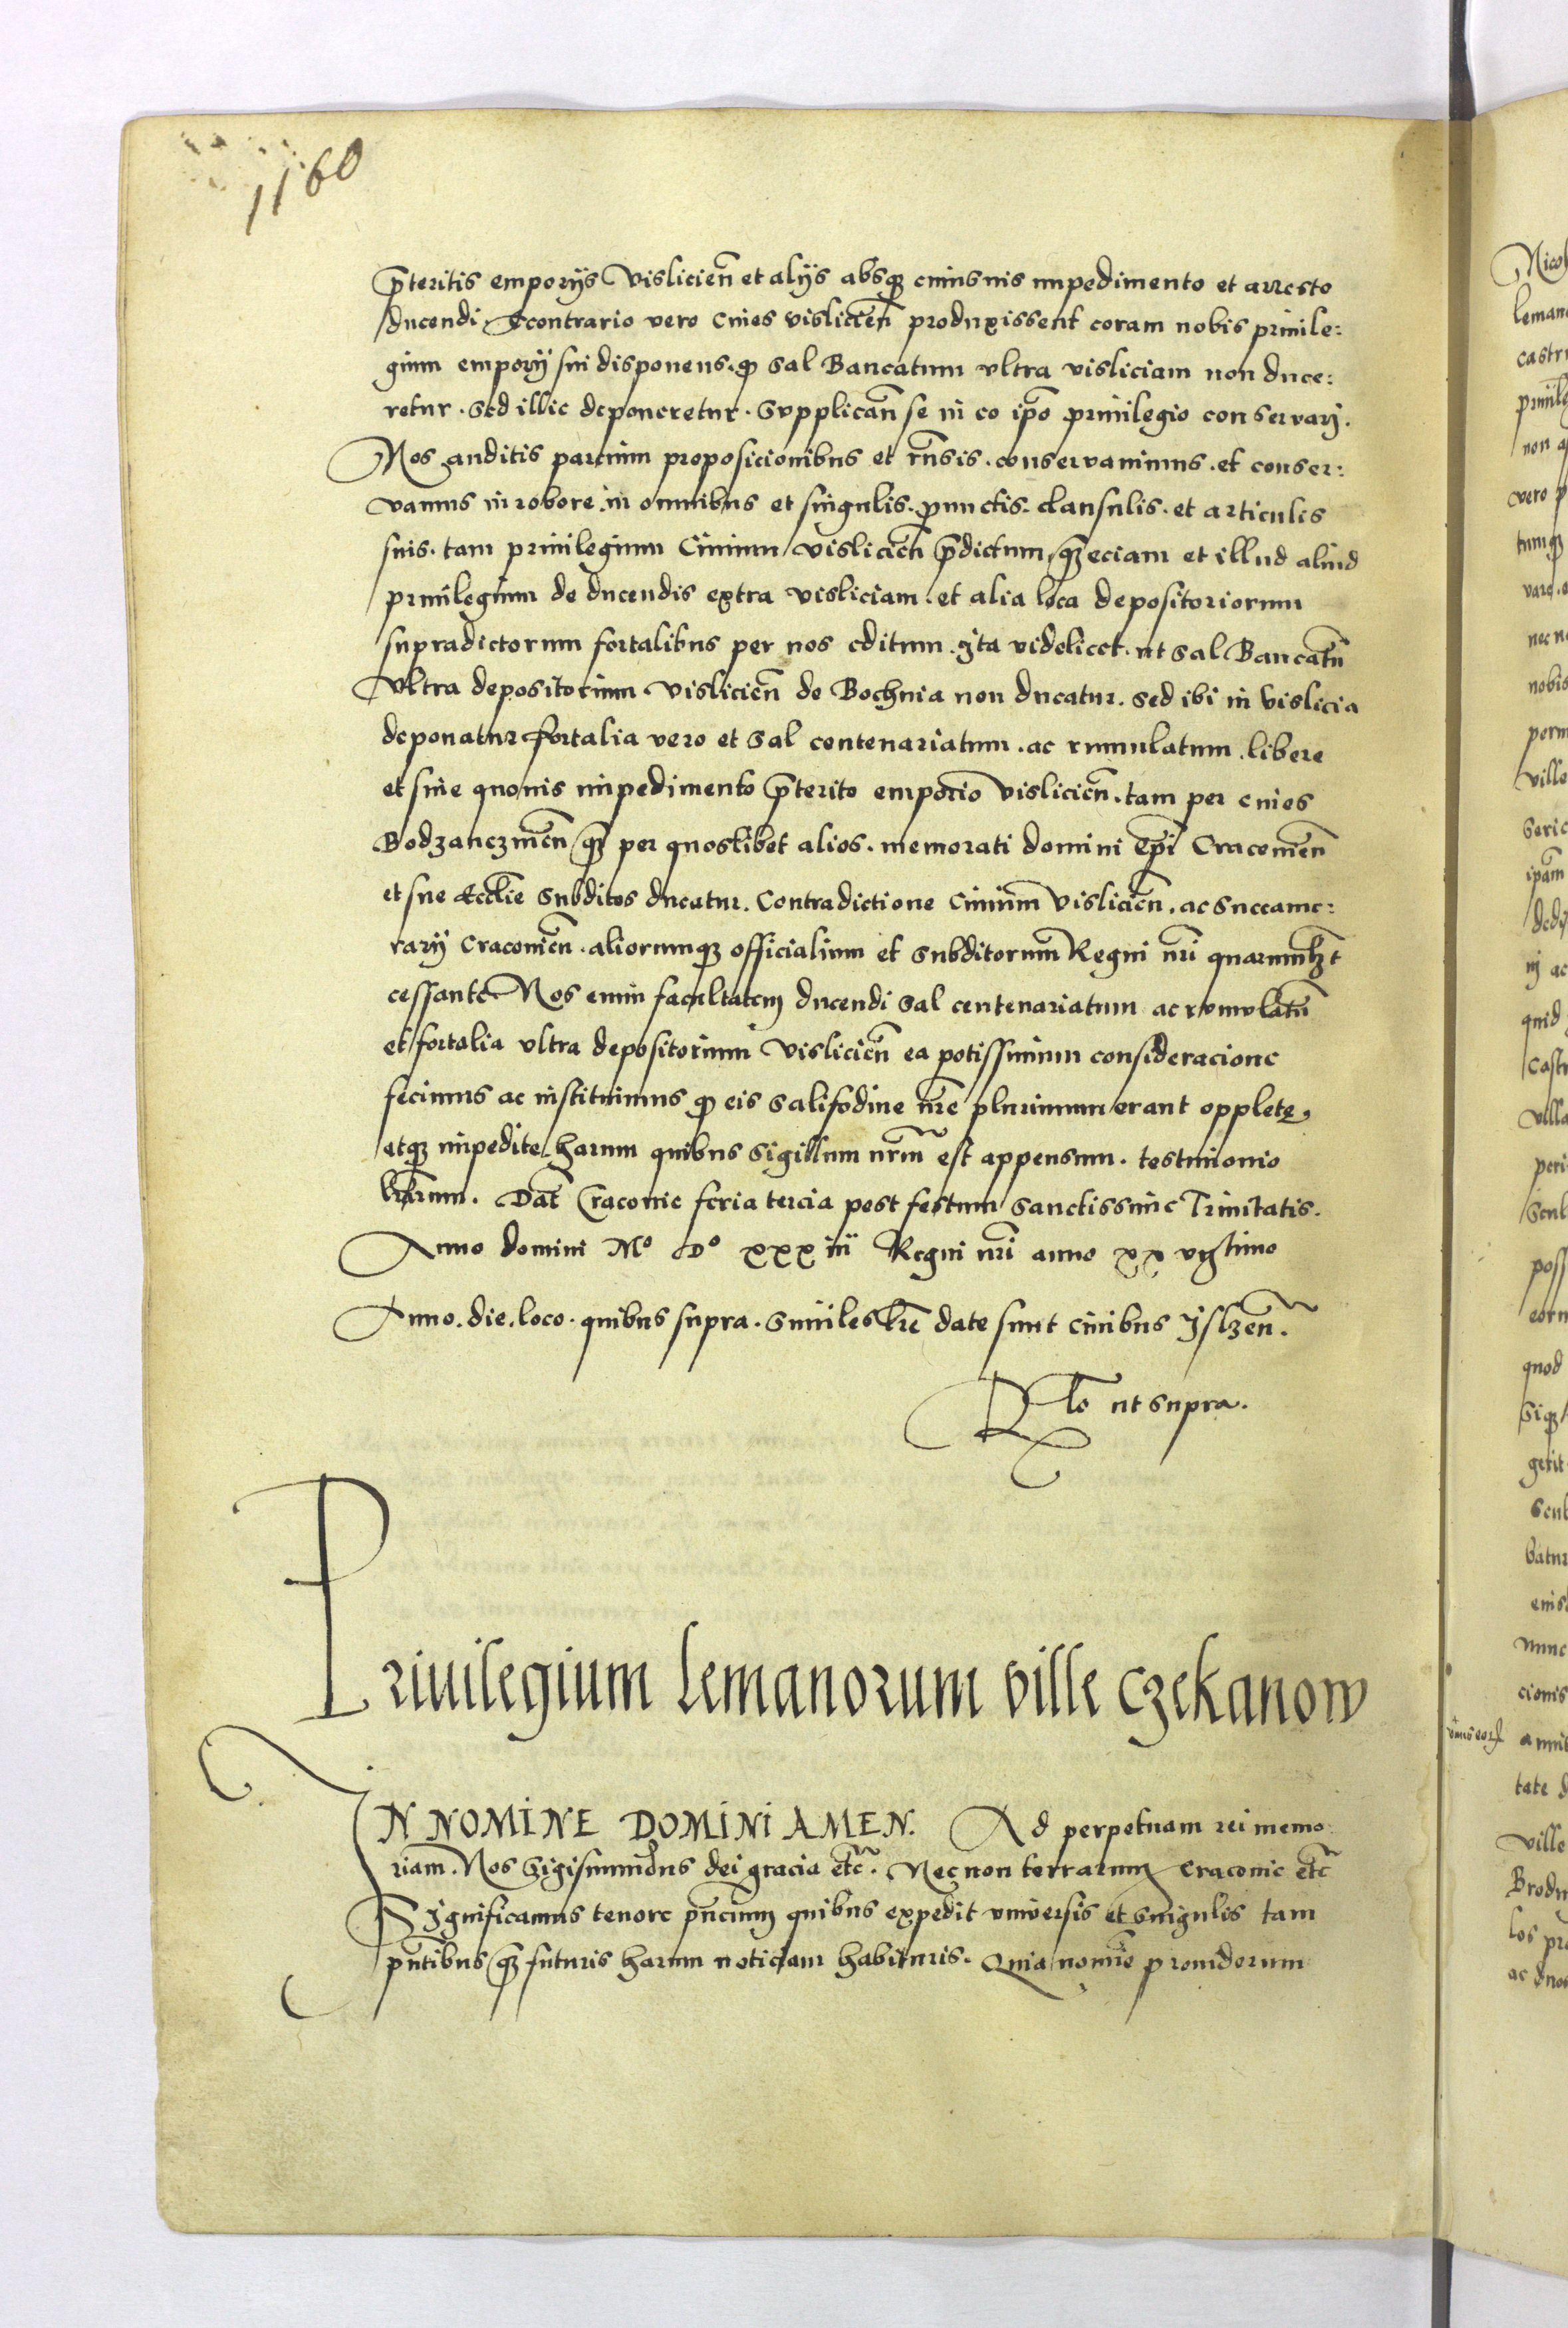 1160
p̄teritis emporijs Vislicien̄ et alijs absqꝫ cuiusuis impedimento et arresto
ducendi Econtrario vero Ciues vislicien̄ produxissent coram nobis priuile:
gium emporij sui disponens. ꝙ sal Bancatum vltra visliciam non duce:
retur. sed illic deponeretur. Supplican̄ se in eo ip̄o priuilegio conservarj.
Nos auditis parcium proposicionibus et rn̄sis. conservauimus. et conser:
vamus in robore. in omnibus et singulis. punctis. clausulis. et articulis
suis. tam priuilegium Ciuium Vislicien̄ p̄dictum, qꝫ eciam et illud aliud
priuilegium de ducendis extra visliciam. et alia loca depositoriorum
supradictorum fortalibus per nos editum. Ita videlicet. ut sal Bancatū
Vltra depositorium Vislicien̄ de Bochnia non ducatur. sed ibi in Vislicia
deponatur fortalia vero et sal centenariatum. ac rumulatum. libere
et sine quouis impedimento p̄terito emporio Vislicien̄. tam per ciues
Bodzanczinen̄ qꝫ per quoslibet alios. memorati domini Ep̄i Cracouien̄
et sue Eccl̄ie subditos ducatur. Contradictione Ciuium Vislicien̄. ac Succame:
rarij Cracouien̄. aliorumqꝫ officialium et subditorum Regni nr̄i quarumlꝫt
cessante. Nos enim facultatem ducendi sal centenariatum ac rumulatū
et fortalia vltra depositorium Vislicien̄ ea potissimum consideracione
fecimus ac instituimus ꝙ eis salifodine nr̄e plurimum erant opplete,
etqꝫ impedite, harum quibus sigillum nr̄m est appensum. testimonio
lr̄arum. Dat̄ Cracouie feria tercia post festum Sanctissime Trinitatis.
Anno domini Mº Dº xxx iij Regni nr̄i anno xx vijtimo
Anno. die. loco. quibus supra. similes lr̄e date sunt ciuibus Jslzen̄.
Rl̄o ut supra.
Priuilegium lemanorum ville Czekanow
IN NOMINE DOMINI AMEN. Ad perpetuam rei memo
riam. Nos Sigismundus dei gracia etc̄. Nec non terrarum Cracouie etc̄
Significamus tenore pn̄cium quibus expedit vniversis et singulis tam
pn̄tibus qꝫ futuris harum noticiam habituris. Quia nomine prouidorum